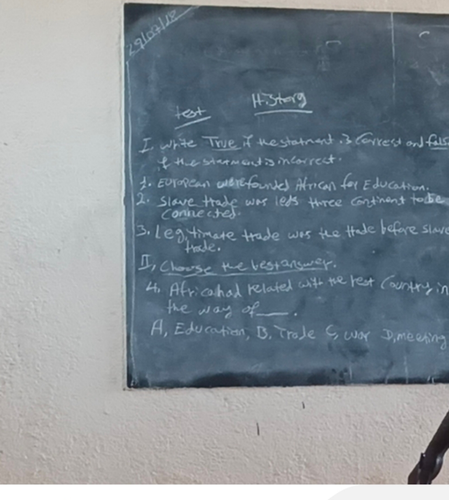 29/07/12
History
test
I write True if the statment is correct and fals
if the statment is incorrect.
1. European were founded African for Education.
2. Slave trade was leds three continent to be
connected.
3. Legitimate trade was the trade before slave
trade.
II, Choose the best answer.
4. Africa had related with the rest Country in
the way of ___.
A, Education, B, Trade C, war D, meeting